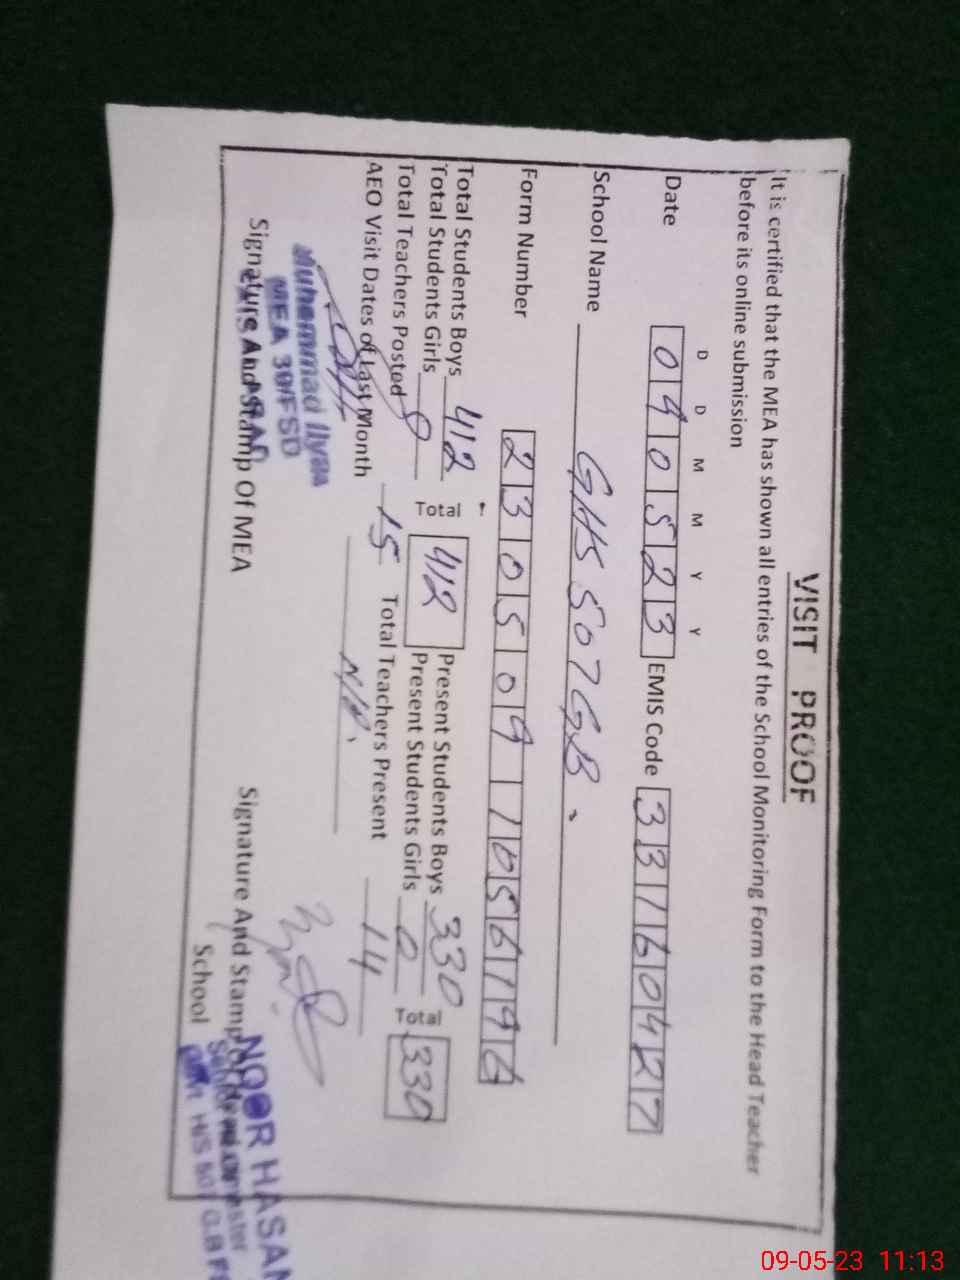 VISIT PROOF
It is certified that the MEA has shown all entries of the School Monitoring Form to the Head Teacher
before its online submission
D D M M Y Y
Date 040523 EMIS Code 33160427
School Name GHS 507 GB.
Form Number 230509
Total Students Boys 412 Total 412 Present Students Boys 330 Total 330
Total Students Girls 0 Present Students Girls 0
Total Teachers Posted 15 Total Teachers Present 14
AEO Visit Dates of Last Month Nil.
Muhammad Ilyas
MEA 39/FSD
Signature And Stamp Of MEA
Signature And Stamp
School
NOOR HASAN
09-05-23 11:13